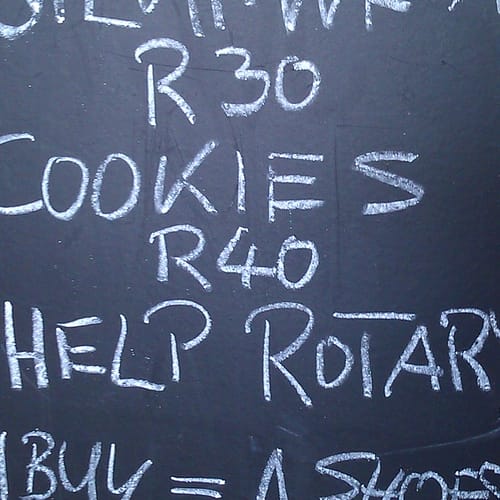 R30
COOKIES
R40
HELP ROTARY
BUY = 1 SHOES